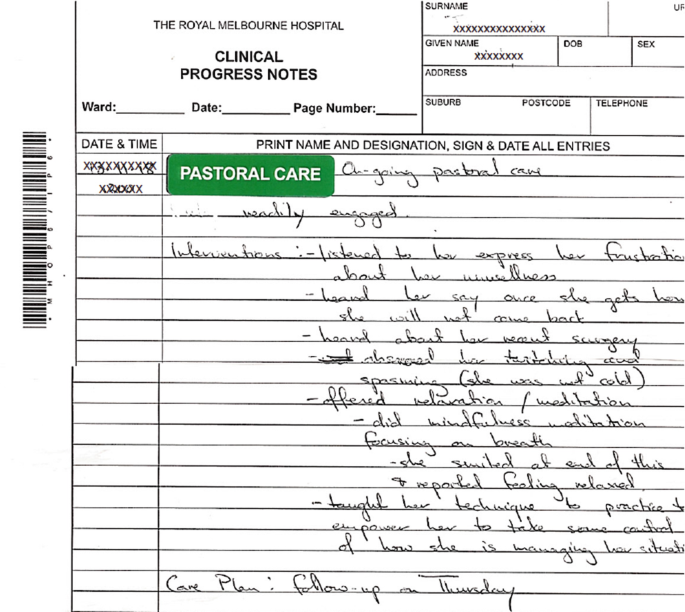 THE ROYAL MELBOURNE HOSPITAL
CLINICAL
PROGRESS NOTES
Ward: Date: Page Number:
SURNAME UR
XXXXXXXXXXXXXXX
GIVEN NAME DOB SEX
XXXXXXXX
ADDRESS
SUBURB POSTCODE TELEPHONE
DATE & TIME PRINT NAME AND DESIGNATION, SIGN & DATE ALL ENTRIES
PASTORAL CARE On-going pastoral care
readily engaged.
Interventions :- listened to her express her frustratio
about her unwellness
- heard her say once she gets
she will not come back
- heard about her recent surgery
- observed her twitching and
spasming (she was not cold)
- offered relaxation / meditation
- did mindfulness meditation
focusing on breath
- she smiled at end of this
& reported feeling relaxed
- taught her technique to practice t
empower her to take some control
of how she is managing her situati
Care Plan : follow-up on Thursday